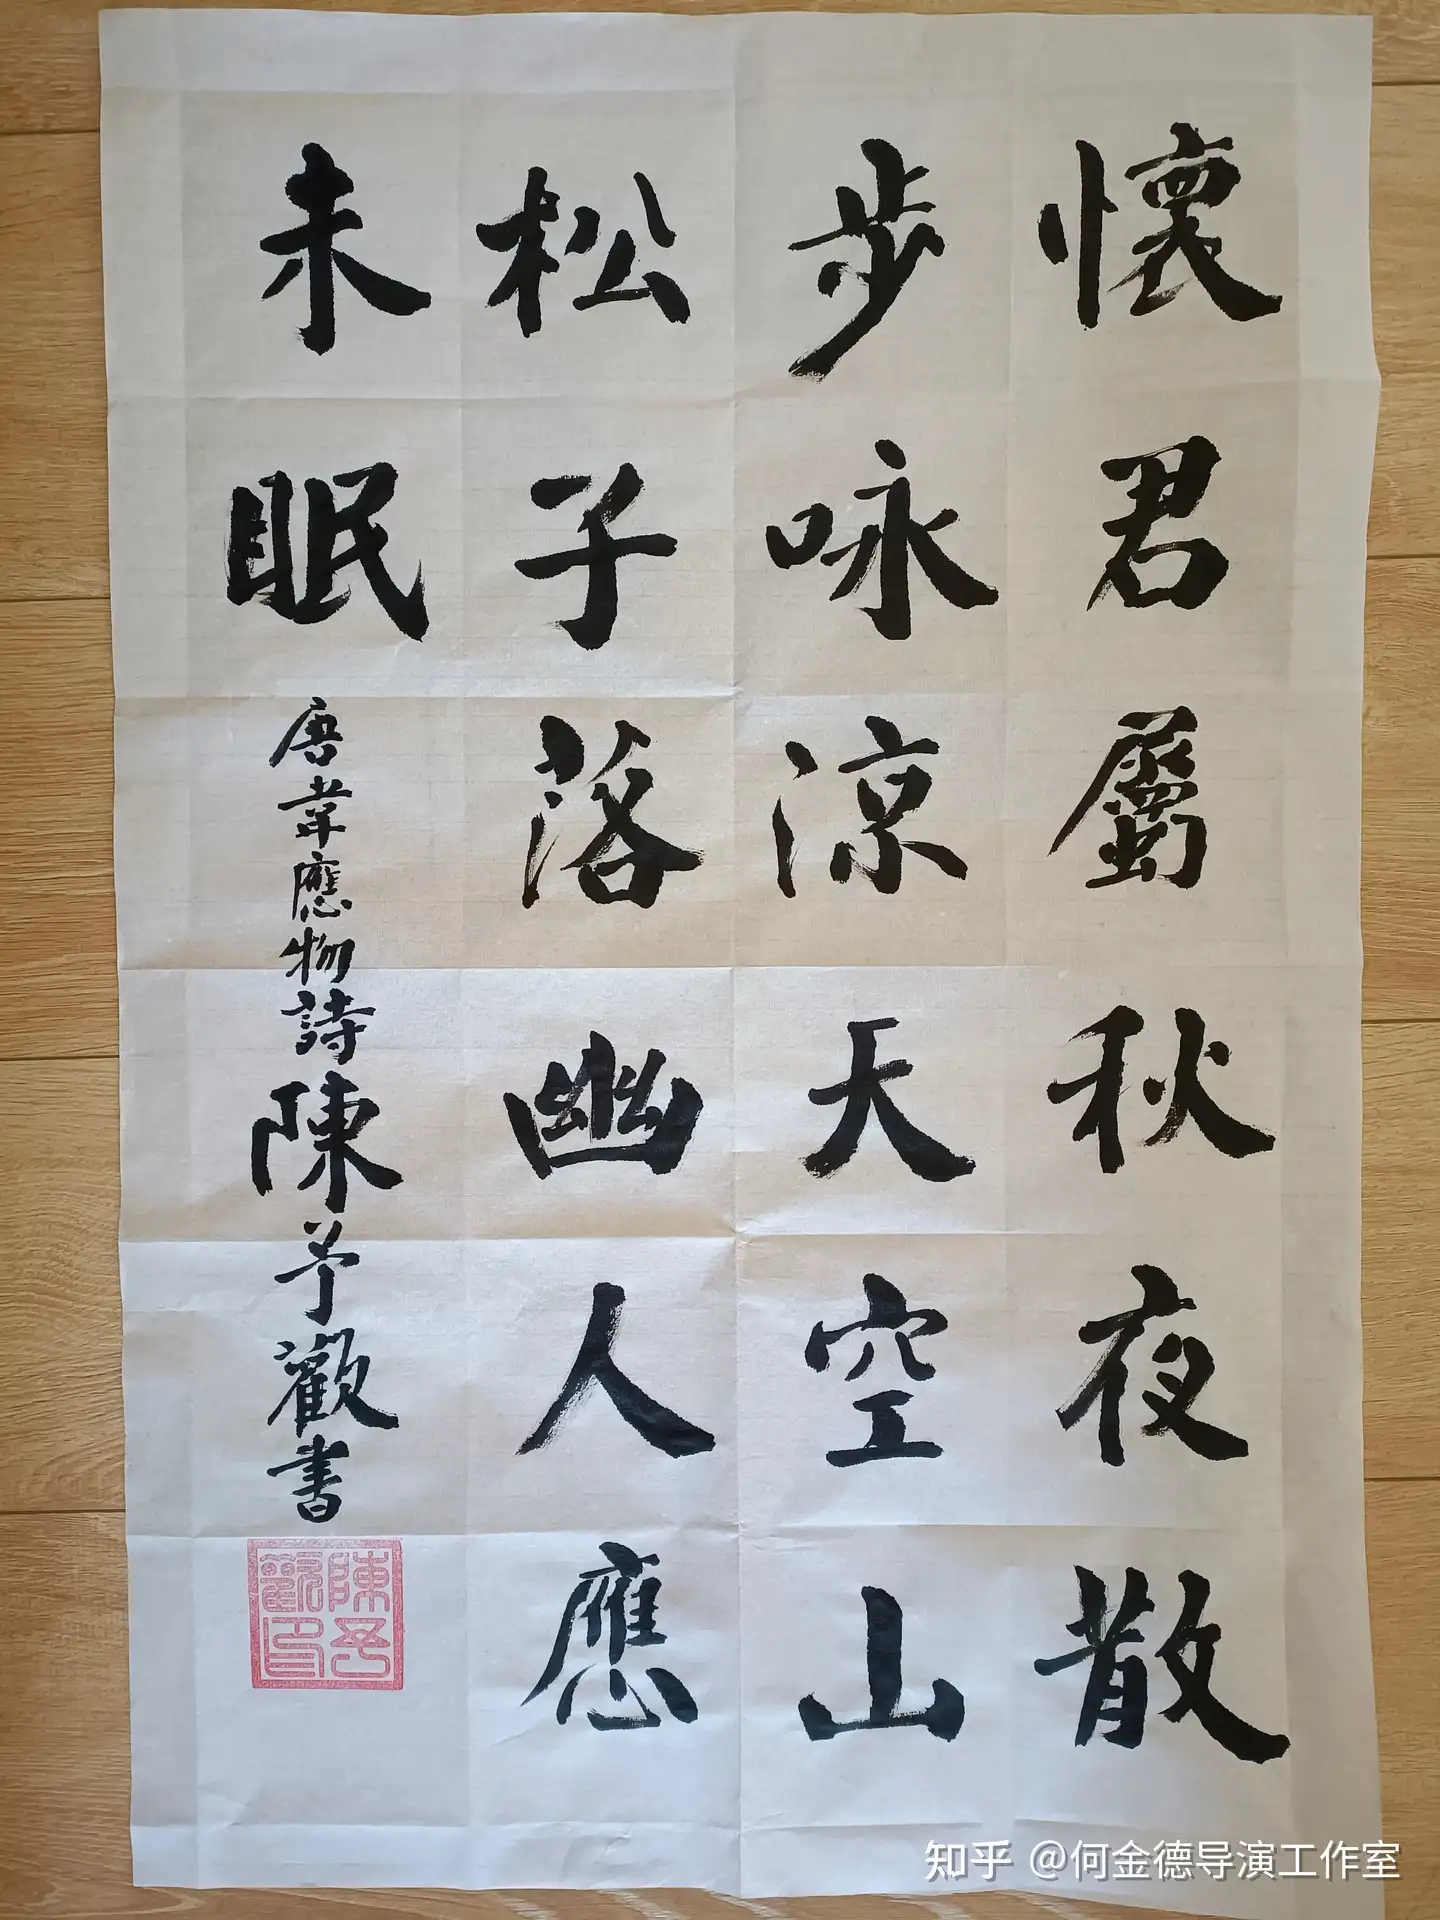 懷君屬秋夜散
步咏涼天空山
松子落幽人應
未眠
唐韋應物詩陳予歡書
知乎 @何金德导演工作室